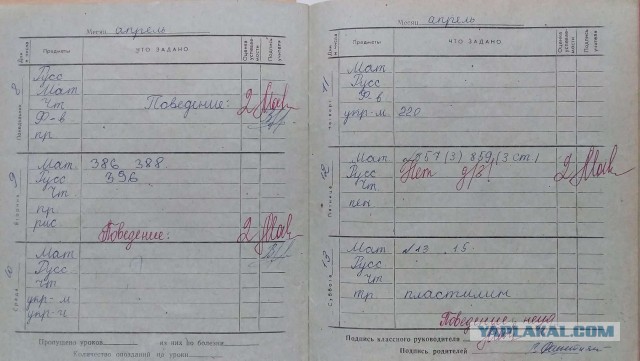 Месяц апрель
Предметы ЧТО ЗАДАНО Оценка успеваемости Подпись учителя
Понедельник 8
Русс
Мат
Чт Поведение: 2
Ф-в
пр.
Вторник 9
Мат 386 388.
Русс 396
Чт
пр.
рис.
Поведение: 2
Среда 10
Мат
Русс
Чт.
упр-м
упр-ч
Пропущено уроков из них по болезни
Количество опозданий на уроки
Месяц апрель
Предметы ЧТО ЗАДАНО Оценка успеваемости Подпись учителя
Четверг 11
Мат
Русс
Ф-в
упр-м. 220
Пятница 12
Мат 857 (3) 859 (3 ст)
Русс Нет д/з! 2
Чт
пен
Суббота 13
Мат №13 15.
Русс
Чт
тр. пластилин
Поведение
Подпись классного руководителя
Подпись родителей
YAPLAKAL.COM